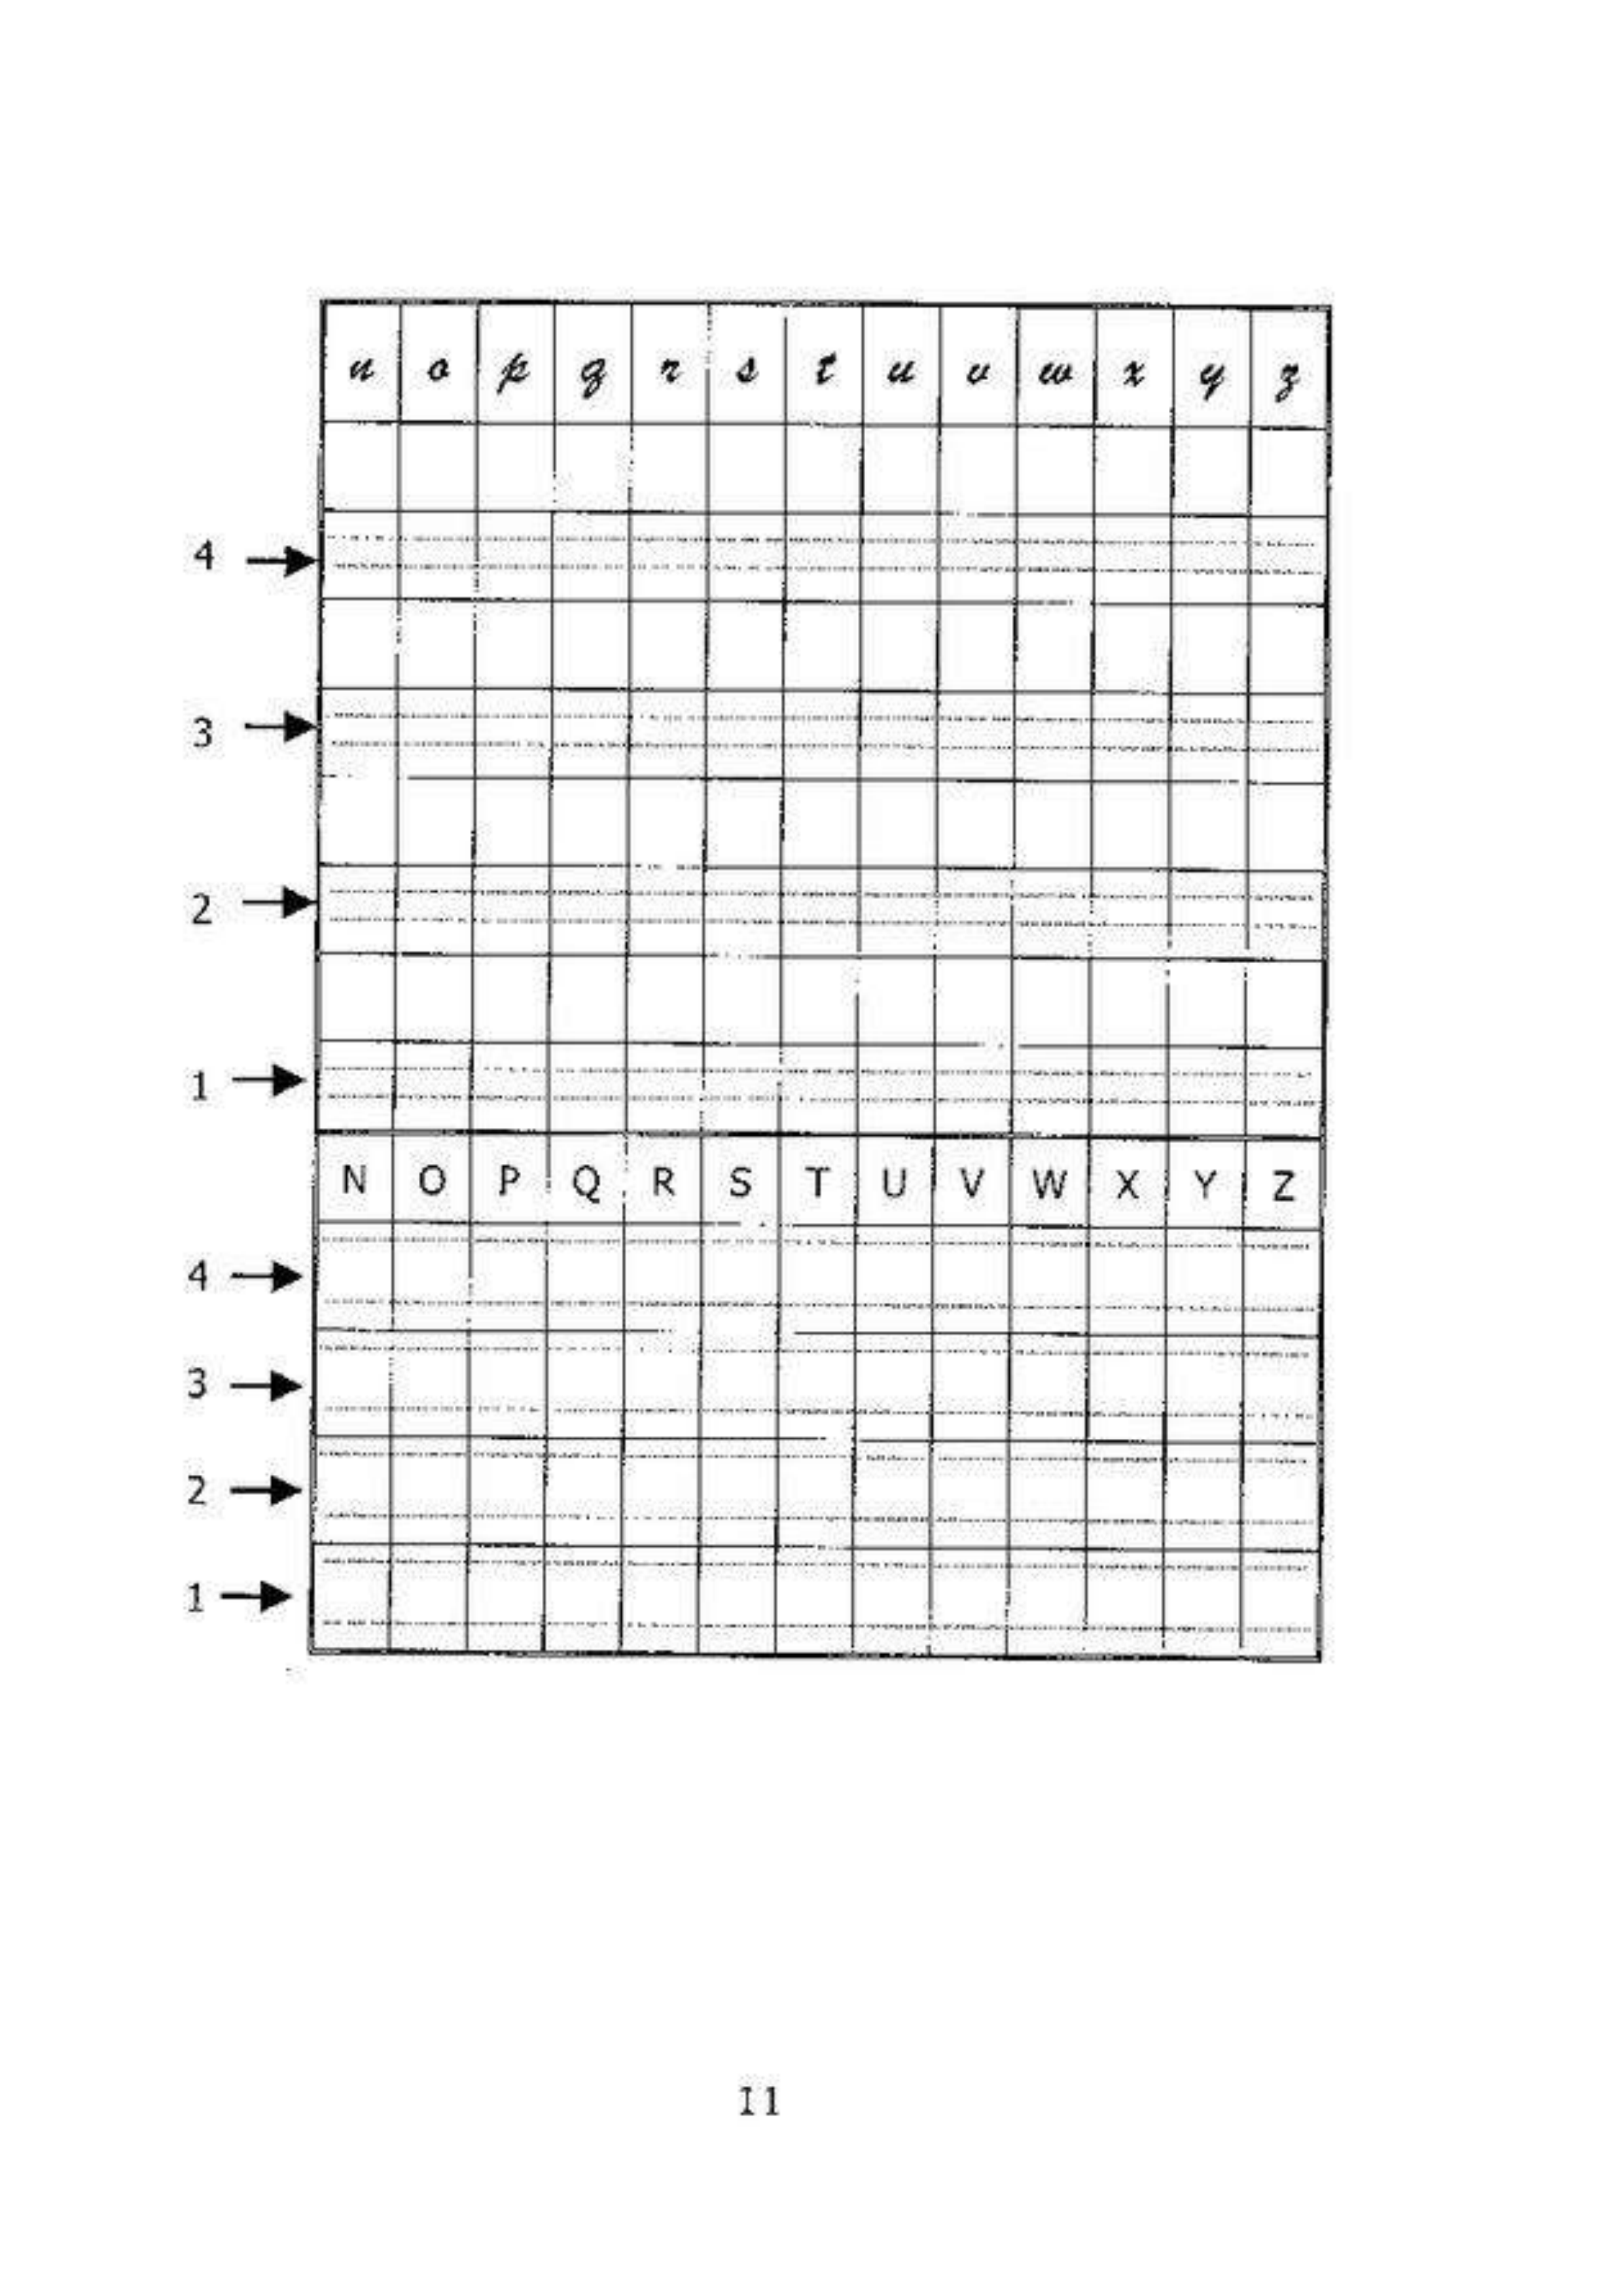 n o p q r s t u v w x y z
4
3
2
1
N O P Q R S T U V W X Y Z
4
3
2
1
I1